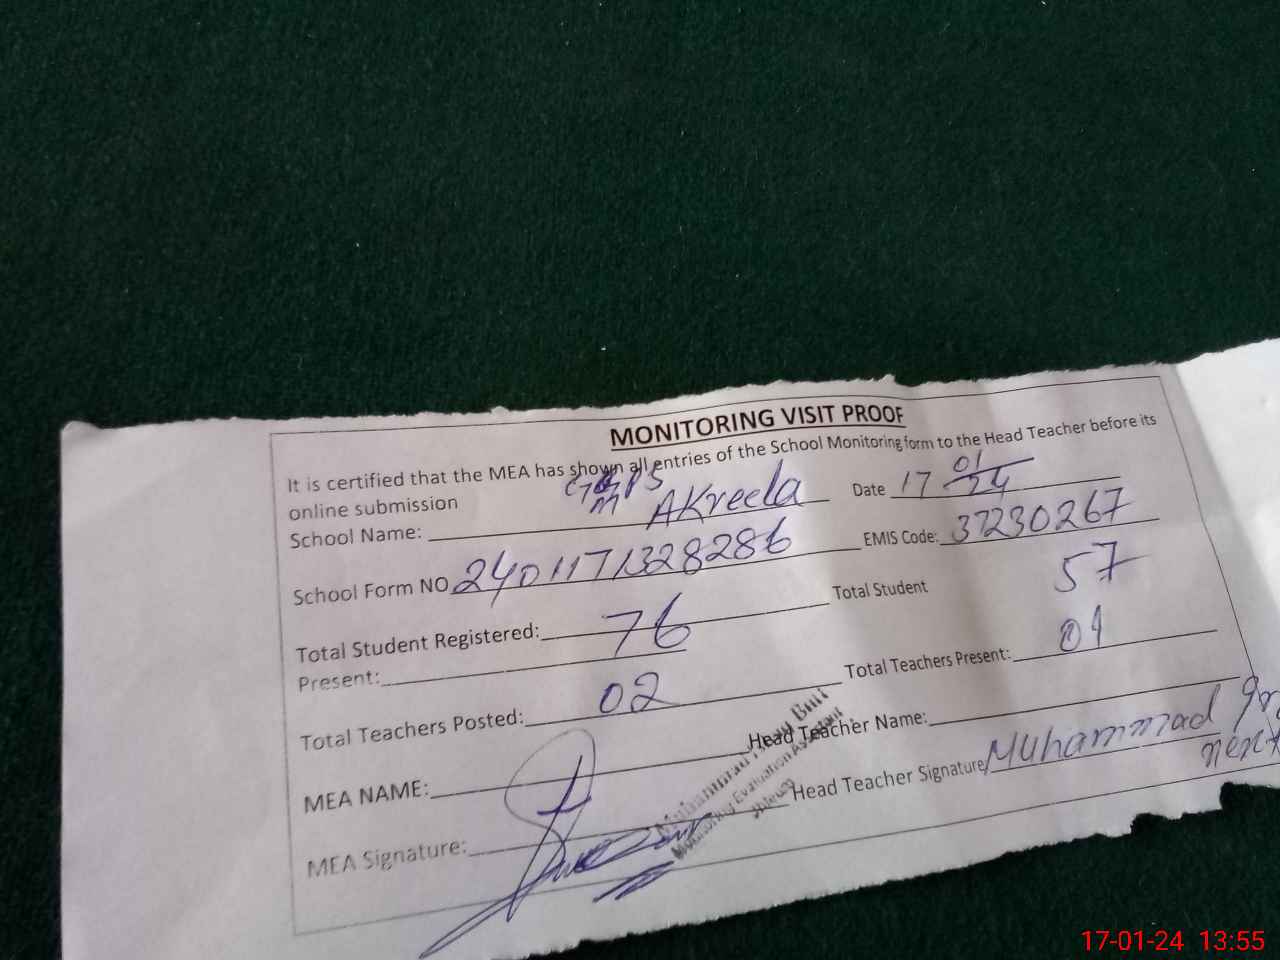 MONITORING VISIT PROOF
It is certified that the MEA has shown all entries of the School Monitoring form to the Head Teacher before its
online submission
School Name: AKreela Date 17 01/24
School Form NO 2401171328286 EMIS Code: 37230267
Total Student Registered: 76 Total Student 57
Present:
Total Teachers Posted: 02 Total Teachers Present: 01
MEA NAME: Head Teacher Name:
MEA Signature: Head Teacher Signature Muhammad
next
Muhammad Butt
Monitoring Evaluation Assistant
17-01-24 13:55